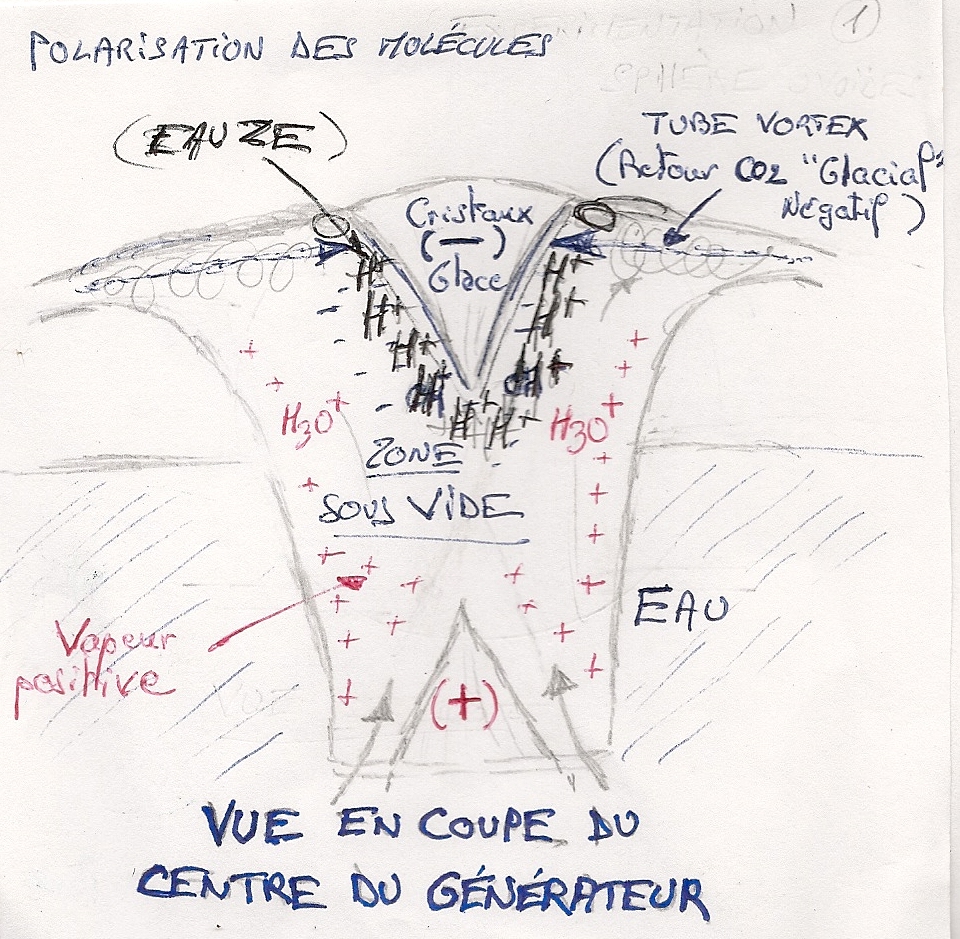 1
POLARISATION DES MOLÉCULES
(EAUZE)
TUBE VORTEX
(Retour CO2 "Glacial"
Négatif)
Cristaux
(—)
Glace
H+ H+
H+ H+
H+ H+
H+ H+
H+ H+
H3O+ H3O+
ZONE
SOUS VIDE
EAU
Vapeur
positive
(+)
VUE EN COUPE DU
CENTRE DU GÉNÉRATEUR